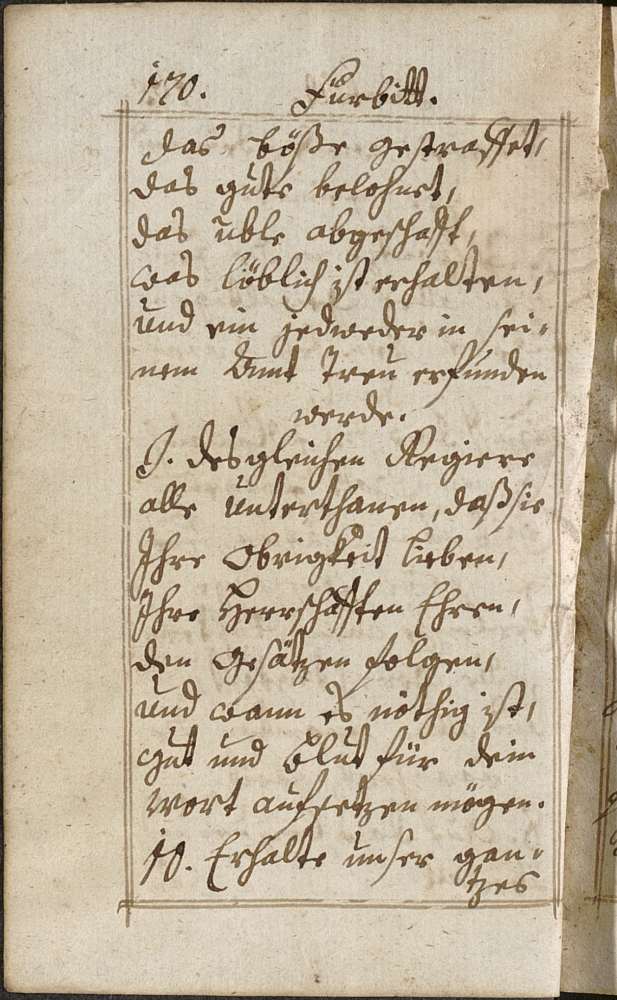 170. Fürbitt.
das böße gestraffet,
das gute belohnet,
das üble abgeschafft,
was löblich ist erhalten,
und ein jedweder in sei-
nem Ambt Treu erfunden
werde.
9. desgleichen Regiere
alle Unterthanen, daß sie
Ihre Obrigkeit lieben,
Ihre Herrschafften Ehren,
den Gesätzen folgen,
und wann es nöthig ist,
gut und blut für dein
wort aufsetzen mögen.
10. Erhalte unser gan-
tzes